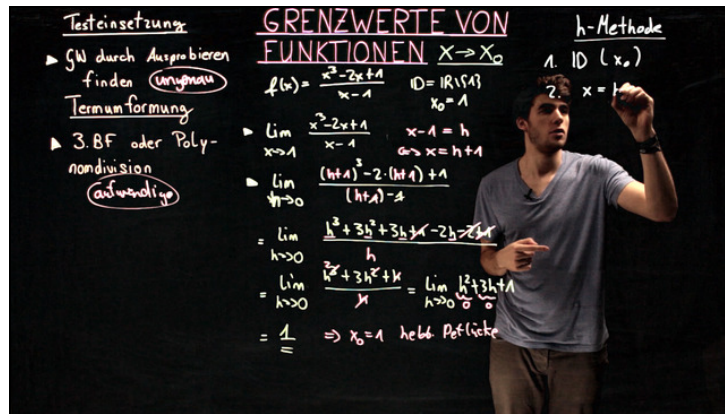 Testeinsetzung
▸ GW durch Ausprobieren
finden ungenau
Termumformung
▸ 3. BF oder Poly-
nomdivision
aufwendig
GRENZWERTE VON
FUNKTIONEN x→x₀
f(x) = (x³-2x+1)/(x-1) ID = IR\{1}
x₀ = 1
▸ lim x→1 (x³-2x+1)/(x-1) x-1 = h
⇔ x = h+1
▸ lim h→0 ((h+1)³-2·(h+1)+1)/((h+1)-1)
= lim h→0 (h³+3h²+3h+1-2h-2+1)/h
= lim h→0 (h³+3h²+h)/h = lim h→0 h²+3h+1
0 0
= 1 ⇒ x₀=1 hebb. Def.lücke
h-Methode
1. ID (x₀)
2. x = h